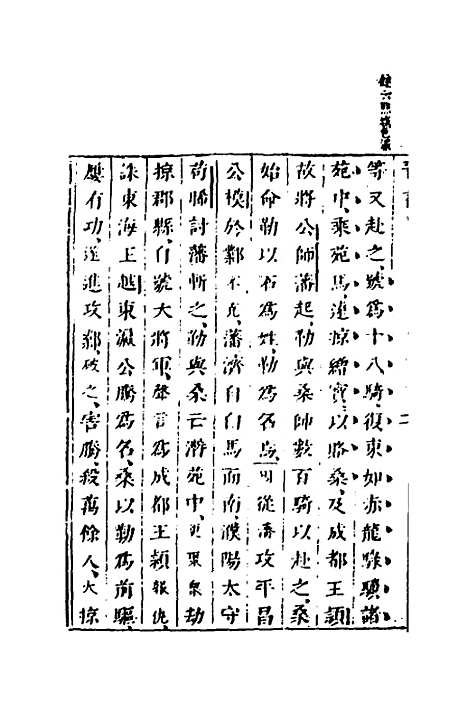 等又赴之號爲十八騎復東如赤龍騄驥諸
苑中乘苑馬遠掠繒寶以賂桑及成都王穎
故將公師藩起勒與桑帥數百騎以赴之桑
始命勒以石爲姓勒爲名焉可從藩攻平昌
公模於鄴不克藩濟自白馬而南濮陽太守
苟晞討藩斬之勒與桑亡潛苑中更聚衆劫
掠郡縣自號大將軍聲言爲成都王穎報仇
誅東海王越東瀛公騰爲名桑以勒爲前驅
屢有功遂進攻鄴破之害騰殺萬餘人大掠